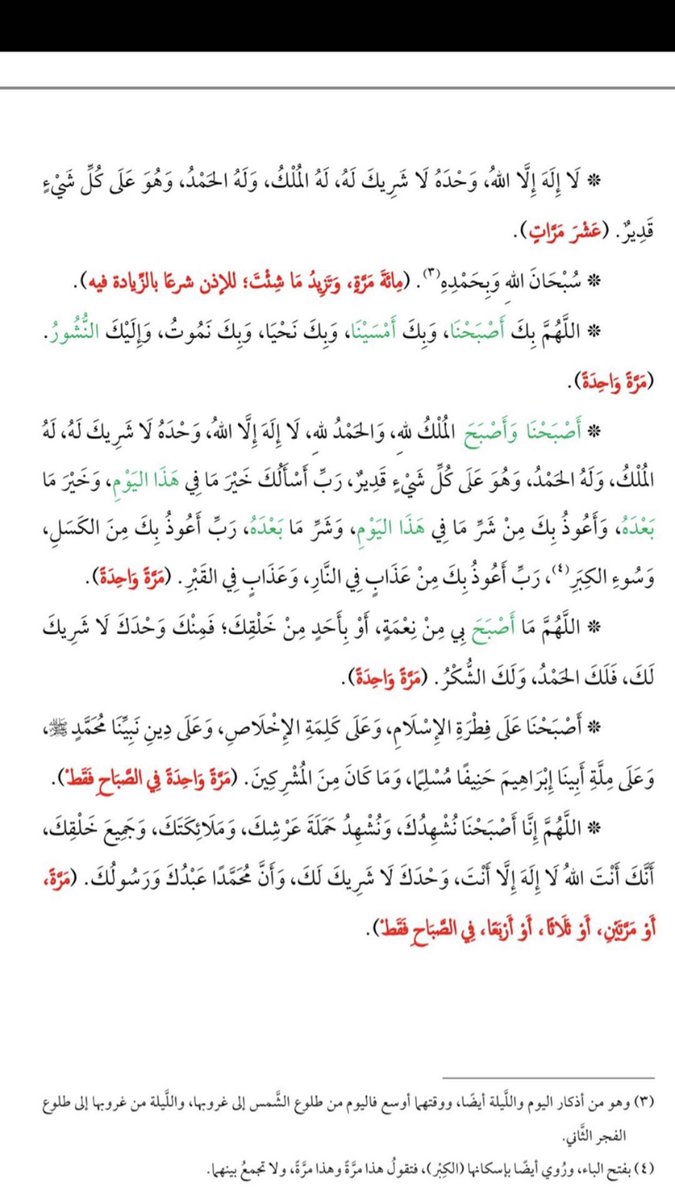 * لَا إِلَهَ إِلَّا اللهُ، وَحْدَهُ لَا شَرِيكَ لَهُ، لَهُ المُلْكُ، وَلَهُ الحَمْدُ، وَهُوَ عَلَى كُلِّ شَيْءٍ
قَدِيرٌ. (عَشْرَ مَرَّاتٍ).
* سُبْحَانَ اللهِ وَبِحَمْدِهِ(٣). (مِائَةَ مَرَّةٍ، وَتَزِيدُ مَا شِئْتَ؛ للإذن شرعًا بالزِّيادة فيه).
* اللَّهُمَّ بِكَ أَصْبَحْنَا، وَبِكَ أَمْسَيْنَا، وَبِكَ نَحْيَا، وَبِكَ نَمُوتُ، وَإِلَيْكَ النُّشُورُ.
(مَرَّةً وَاحِدَةً).
* أَصْبَحْنَا وَأَصْبَحَ المُلْكُ للهِ، وَالحَمْدُ للهِ، لَا إِلَهَ إِلَّا اللهُ، وَحْدَهُ لَا شَرِيكَ لَهُ، لَهُ
المُلْكُ، وَلَهُ الحَمْدُ، وَهُوَ عَلَى كُلِّ شَيْءٍ قَدِيرٌ، رَبِّ أَسْأَلُكَ خَيْرَ مَا فِي هَذَا اليَوْمِ، وَخَيْرَ مَا
بَعْدَهُ، وَأَعُوذُ بِكَ مِنْ شَرِّ مَا فِي هَذَا اليَوْمِ، وَشَرِّ مَا بَعْدَهُ، رَبِّ أَعُوذُ بِكَ مِنَ الكَسَلِ،
وَسُوءِ الكِبَرِ(٤)، رَبِّ أَعُوذُ بِكَ مِنْ عَذَابٍ فِي النَّارِ، وَعَذَابٍ فِي القَبْرِ. (مَرَّةً وَاحِدَةً).
* اللَّهُمَّ مَا أَصْبَحَ بِي مِنْ نِعْمَةٍ، أَوْ بِأَحَدٍ مِنْ خَلْقِكَ؛ فَمِنْكَ وَحْدَكَ لَا شَرِيكَ
لَكَ، فَلَكَ الحَمْدُ، وَلَكَ الشُّكْرُ. (مَرَّةً وَاحِدَةً).
* أَصْبَحْنَا عَلَى فِطْرَةِ الإِسْلَامِ، وَعَلَى كَلِمَةِ الإِخْلَاصِ، وَعَلَى دِينِ نَبِيِّنَا مُحَمَّدٍ ﷺ،
وَعَلَى مِلَّةِ أَبِينَا إِبْرَاهِيمَ حَنِيفًا مُسْلِمًا، وَمَا كَانَ مِنَ المُشْرِكِينَ. (مَرَّةً وَاحِدَةً فِي الصَّبَاحِ فَقَطْ).
* اللَّهُمَّ إِنَّا أَصْبَحْنَا نُشْهِدُكَ، وَنُشْهِدُ حَمَلَةَ عَرْشِكَ، وَمَلَائِكَتَكَ، وَجَمِيعَ خَلْقِكَ،
أَنَّكَ أَنْتَ اللهُ لَا إِلَهَ إِلَّا أَنْتَ، وَحْدَكَ لَا شَرِيكَ لَكَ، وَأَنَّ مُحَمَّدًا عَبْدُكَ وَرَسُولُكَ. (مَرَّةً،
أَوْ مَرَّتَيْنِ، أَوْ ثَلَاثًا، أَوْ أَرْبَعًا، فِي الصَّبَاحِ فَقَطْ).
(٣) وهو من أذكار اليوم واللَّيلة أيضًا، ووقتهما أوسع فاليوم من طلوع الشَّمس إلى غروبها، واللَّيلة من غروبها إلى طلوع
الفجر الثَّاني.
(٤) بفتح الباء، ورُوي أيضًا بإسكانها (الكِبْر)، فتقولُ هذا مرَّةً وهذا مرَّةً، ولا تجمعُ بينهما.